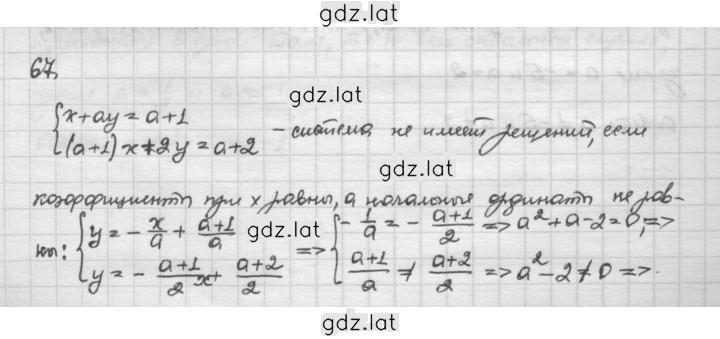 gdz.lat
67.
{x+ay=a+1
gdz.lat
{(a+1)x+2y=a+2 - система не имеет решений, если
gdz.lat
коэффициенты при x равны, а начальные ординаты не рав-
ны: {y=-x/a+(a+1)/a => {-1/a=-(a+1)/2 => a²+a-2=0, =>
gdz.lat
{y=-(a+1)/2 x+(a+2)/2 {(a+1)/a≠(a+2)/2 => a²-2≠0 =>
gdz.lat